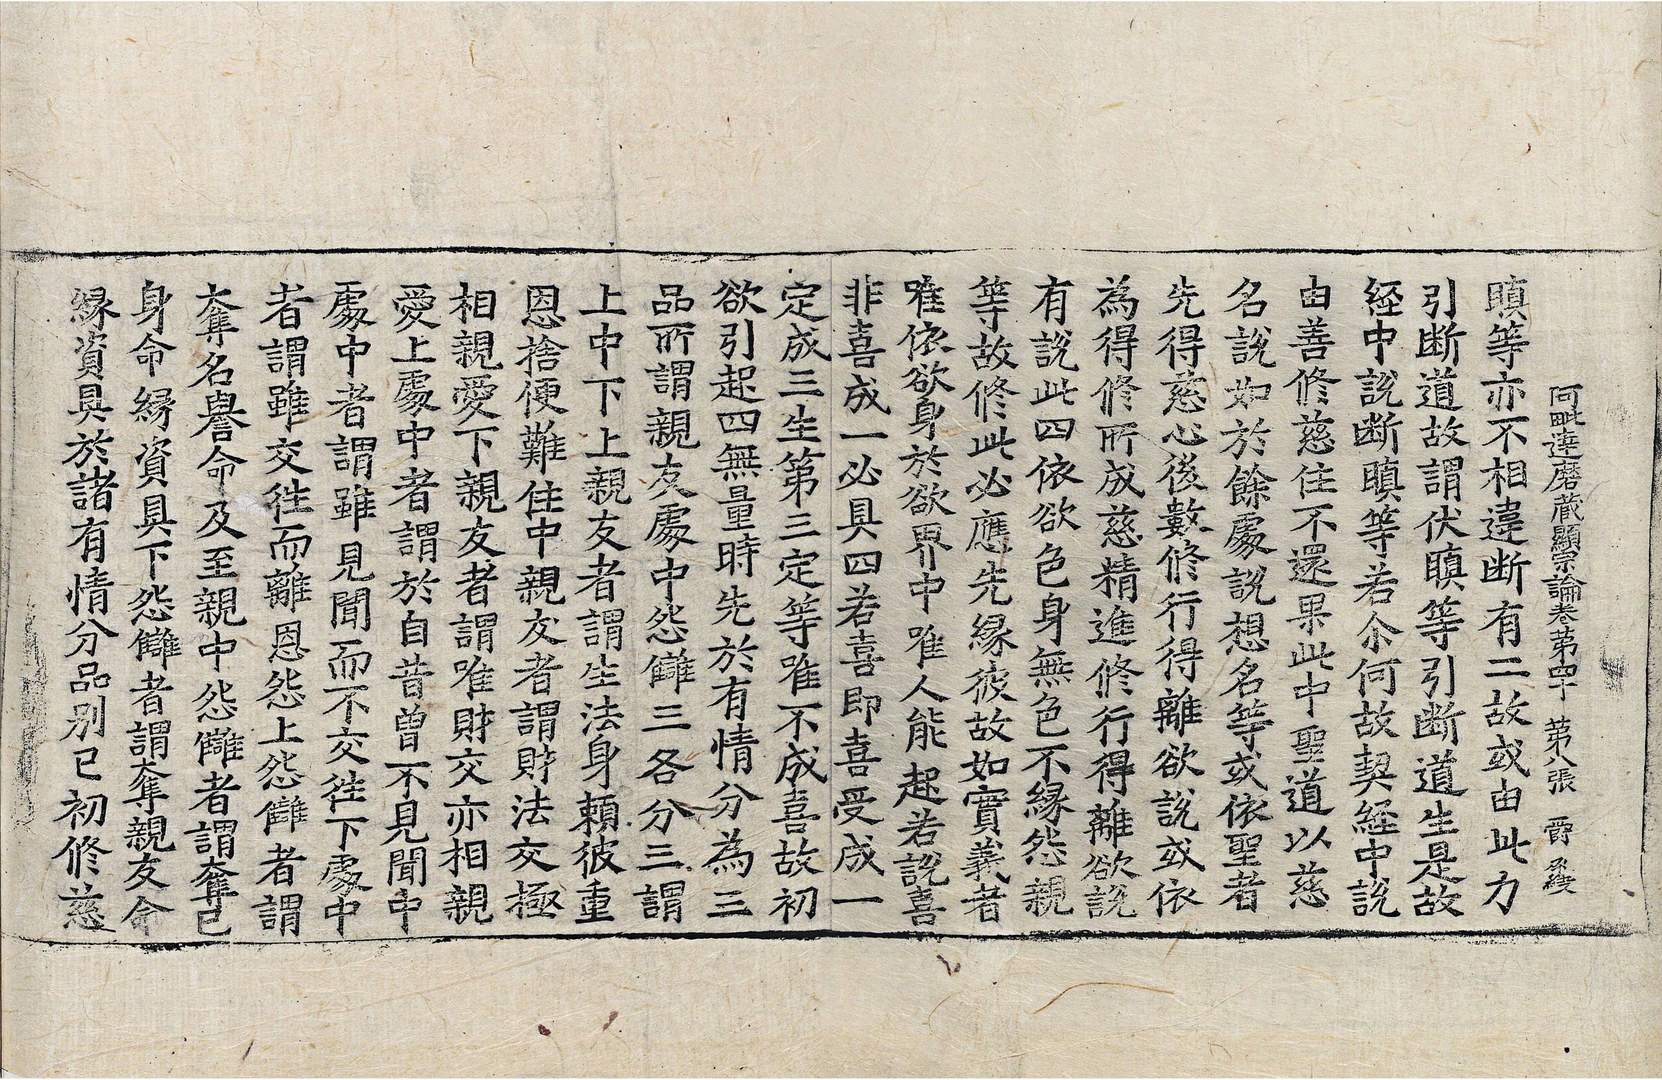 阿毗達磨藏顯宗論卷第四十 第八張 爵
瞋等亦不相違断有二故或由此力
引断道故謂伏瞋等引断道生是故
經中說断瞋等若尒何故契經中說
由善修慈住不還果此中聖道以慈
名說如於餘處說想名等或依聖者
先得慈心後數修行得離欲說或依
為得修所成慈精進修行得離欲說
有說此四依欲色身無色不縁怨親
等故修此必應先縁彼故如實義者
唯依欲身於欲界中唯人能起若說喜
非喜成一必具四若喜即喜受成一
定成三生第三定等唯不成喜故初
欲引起四無量時先於有情分為三
品所謂親友處中怨讎三各分三謂
上中下上親友者謂生法身頼彼重
恩捨便難住中親友者謂財法交極
相親愛下親友者謂唯財交亦相親
愛上處中者謂於自昔曾不見聞中
處中者謂雖見聞而不交徃下處中
者謂雖交徃而離恩怨上怨讎者謂
奪名譽命及至親中怨讎者謂奪己
身命縁資具下怨讎者謂奪親友命
縁資具於諸有情分品別已初修慈